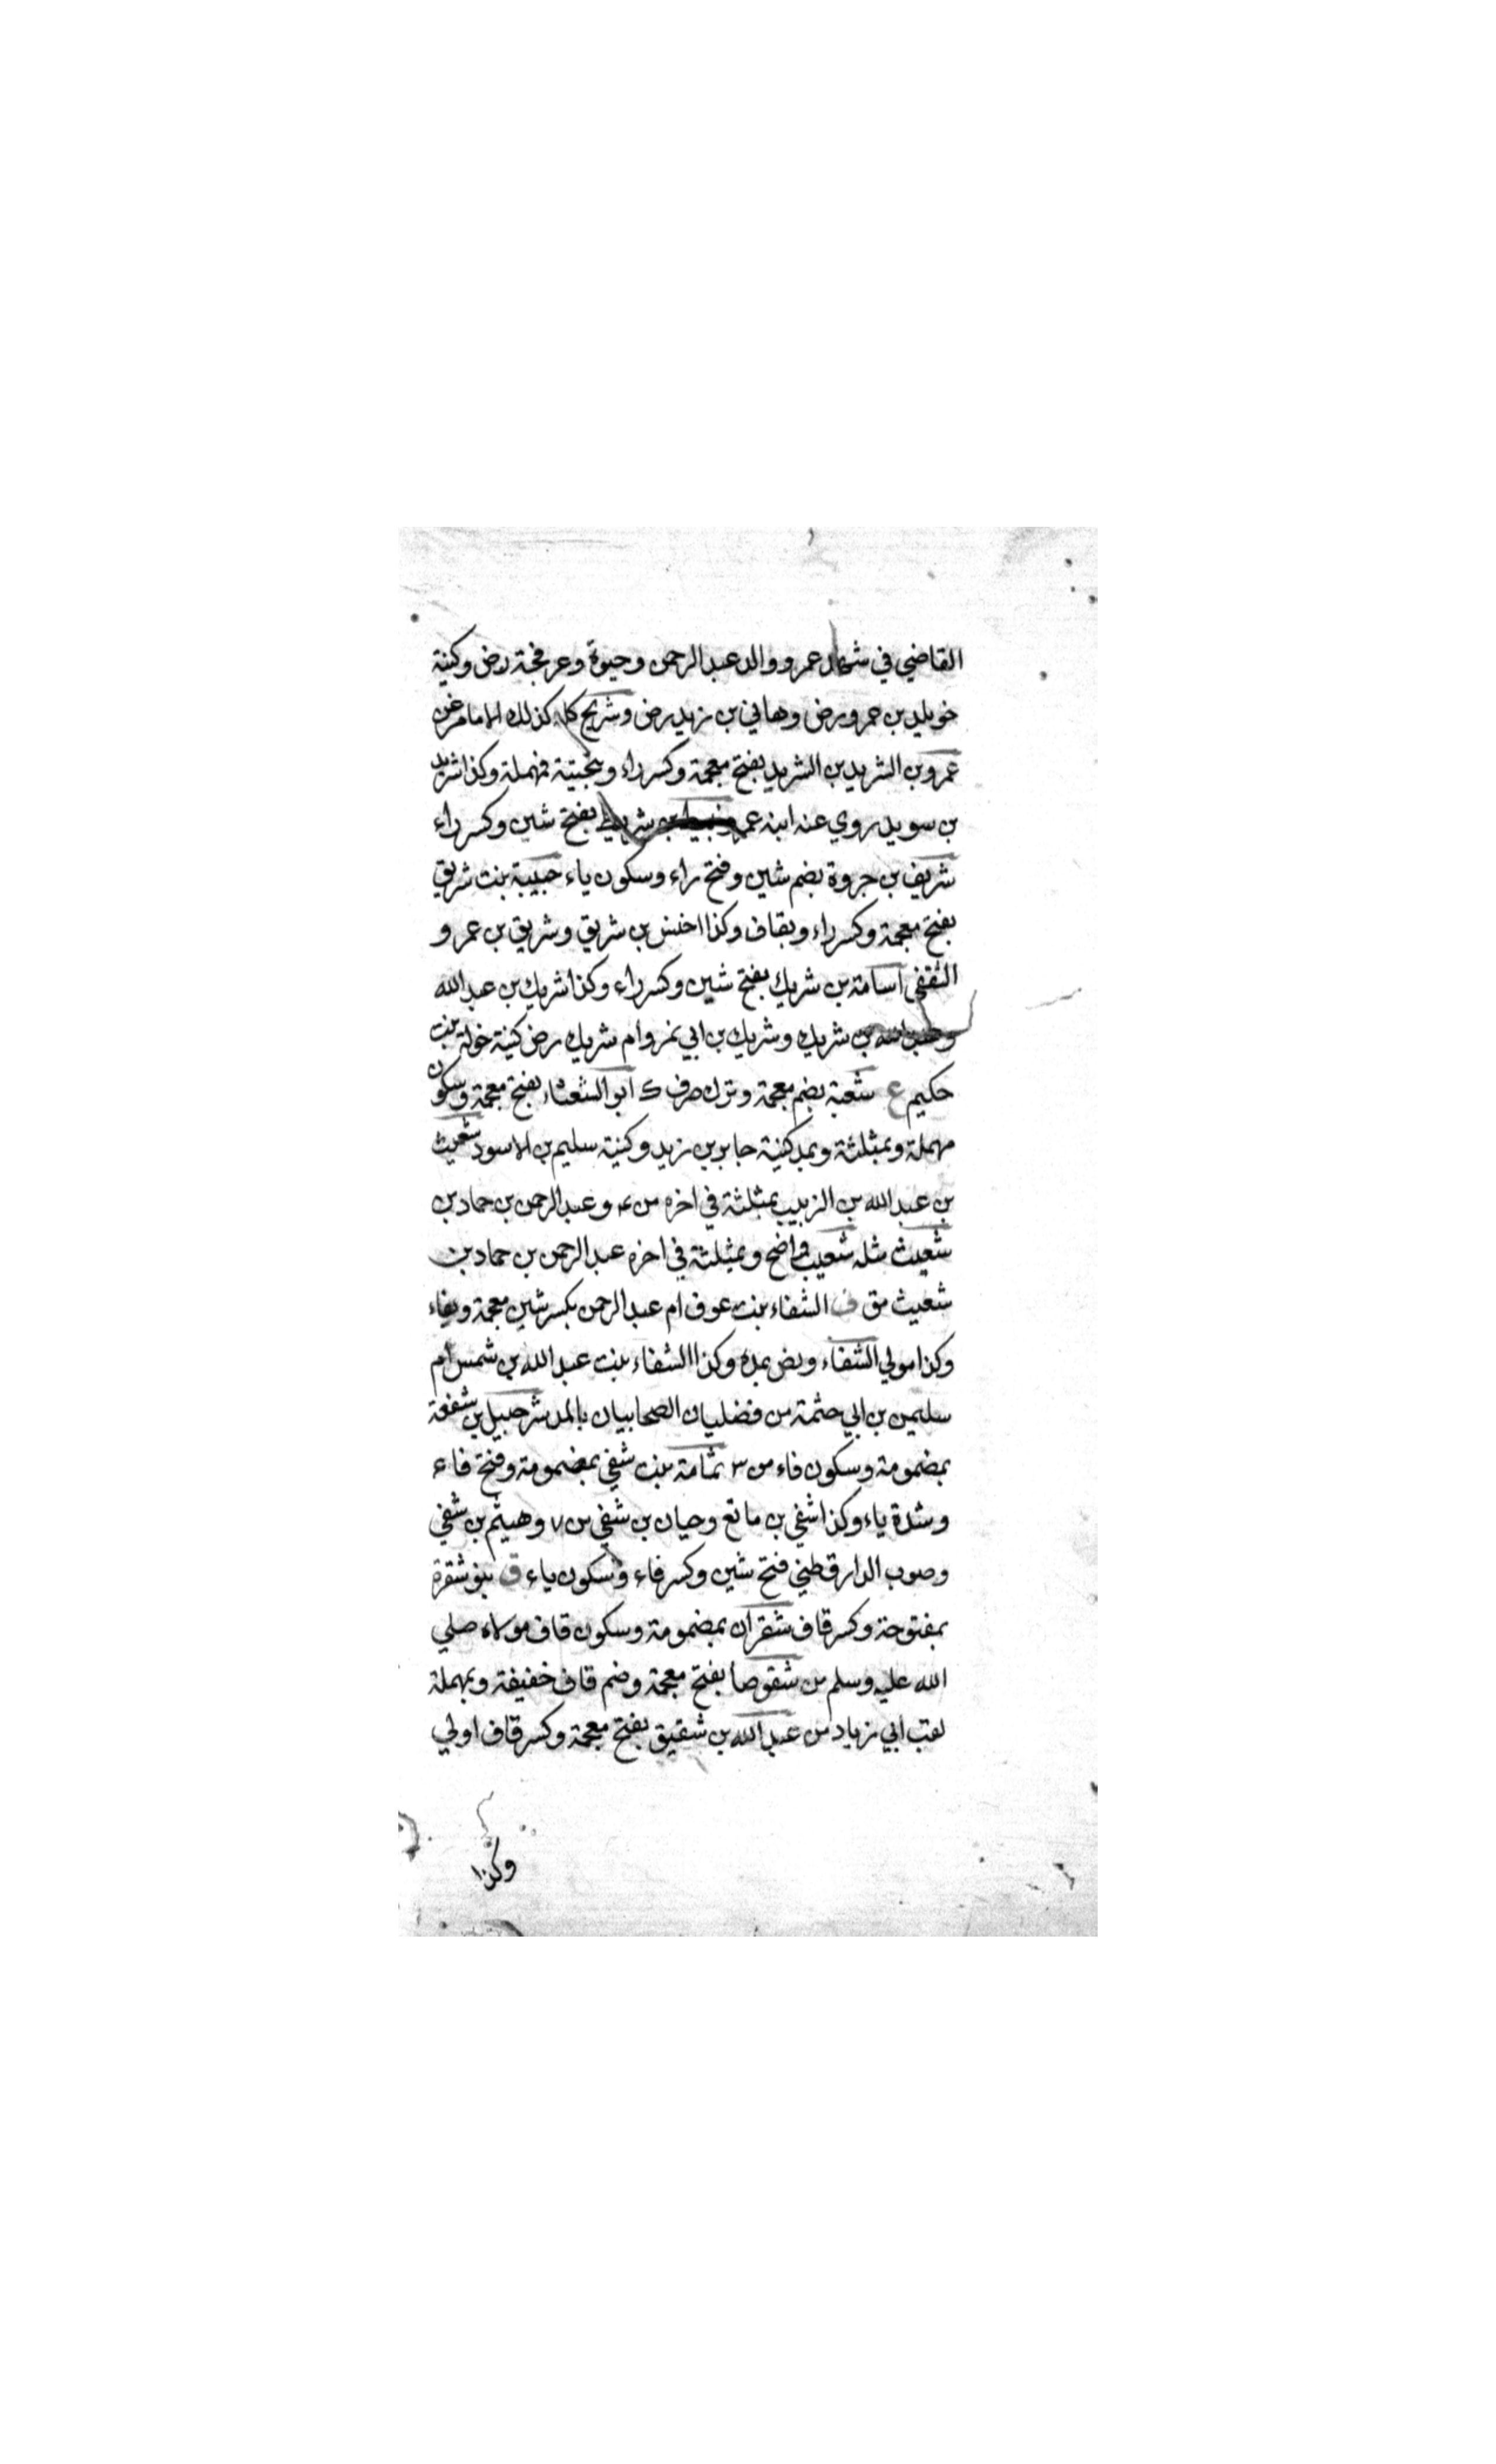 القاضي في شمال عمرو والد عبد الرحمن وحيوة وعرفجة رض وكنية
خويلد بن عمرو رض وهاني بن زيد رض وشريح كله كذلك الا مامر عن
عمرو بن الشريد بن الشريد بفتح معجمة وكسر راء وبتحتية فمهملة وكذا شريد
بن سويد روي عنه ابنه عمرو نبيط بن شريط بفتح شين وكسر راء
شريف بن جروة بضم شين وفتح راء وسكون ياء حبيبة بنت شريق
بفتح معجمة وكسر راء وبقاف وكذا اخنس بن شريق وشريق بن عمرو
الثقفي اسامة بن شريك بفتح شين وكسر راء وكذا شريك بن عبد الله
وعبد الله بن شريك وشريك بن ابي نمر وام شريك رض كنية خولة بنت
حكيم ع شعبة بضم معجمة وترك صرف ك ابو الشعثاء بفتح معجمة وسكون
مهملة وبمثلثة وبمد كنية جابر بن زيد وكنية سليم بن الاسود شعيث
بن عبد الله بن الزبيب بمثلثة في اخره من ٤ وعبد الرحمن بن حماد بن
شعيث مثله شعيب واضح وبمثلثة في اخره عبد الرحمن بن حماد بن
شعيث مق ف الشفاء بنت عوف ام عبد الرحمن بكسر شين معجمة وبفاء
وكذا مولي الشفاء وبض بمده وكذا الشفاء بنت عبد الله بن شمس ام
سليمن بن ابي حثمة من فضليات الصحابيات بالمد شرحبيل بن شفعة
بمضمومة وسكون فاء من ٣ ثمامة بنت شفي بمضمومة وفتح فاء
وشدة ياء وكذا شفي بن ماتع وحيان بن شفي من ٧ وهيثم بن شفي
وصوب الدارقطني فتح شين وكسر فاء وسكون ياء ق بنو شقرة
بمفتوحة وكسر قاف شقران بمضمومة وسكون قاف مولاه صلي
الله عليه وسلم من شقوصا بفتح معجمة وضم قاف خفيفة وبمهملة
لقب ابي زياد من عبد الله بن شقيق بفتح معجمة وكسر قاف اولي
وكذا